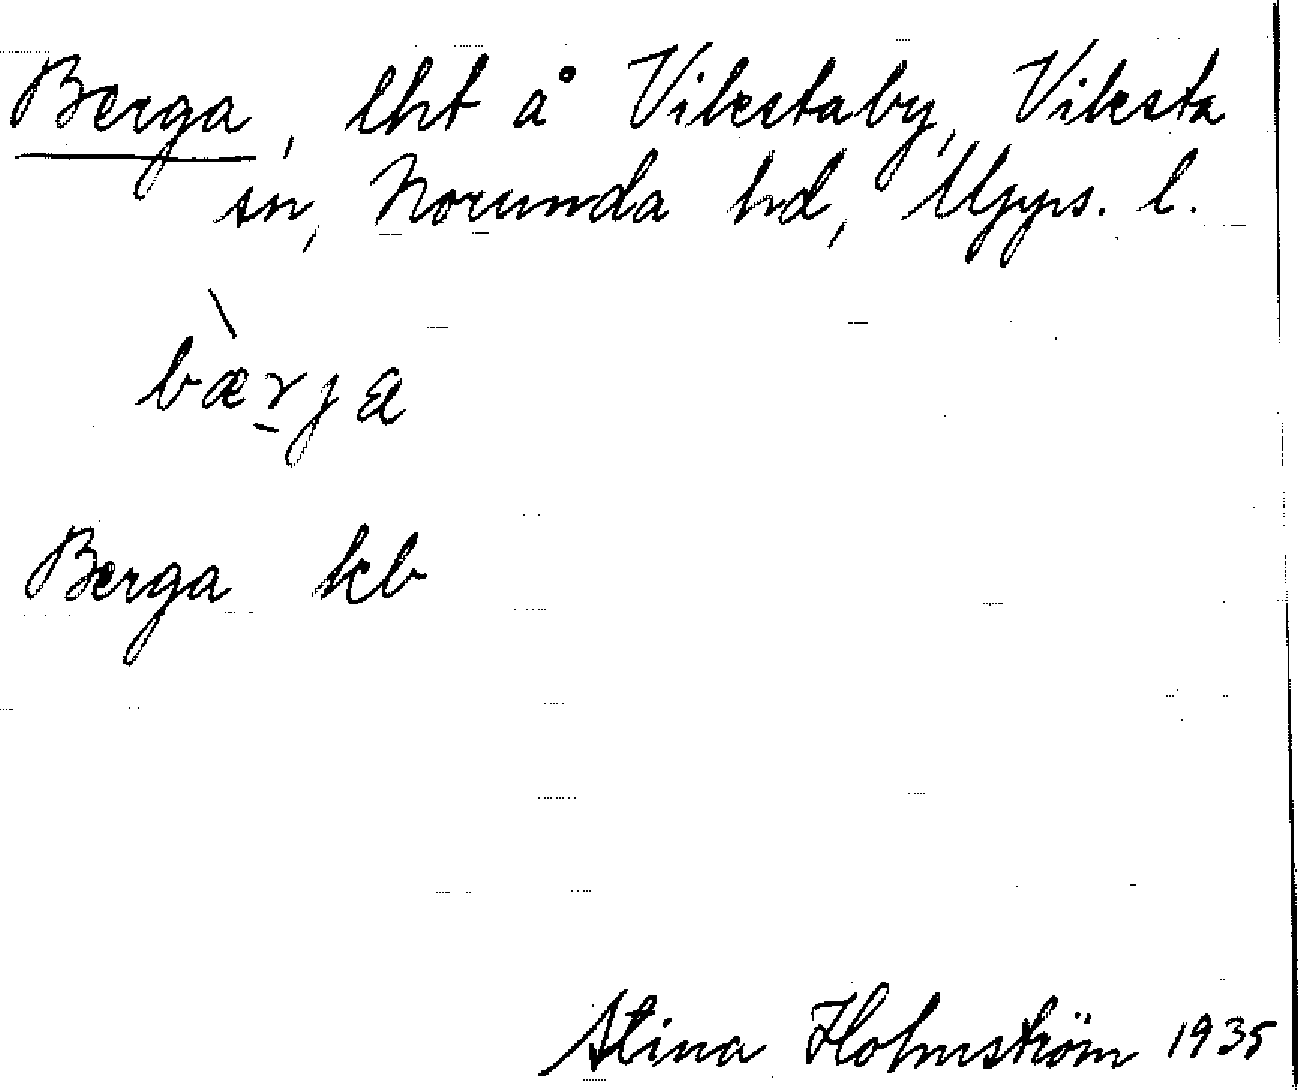 Berga, lht å Viksta by, Viksta
sn, Norunda hd, Upps. l.
bær̠ja
Berga kb
Stina Holmström 1935